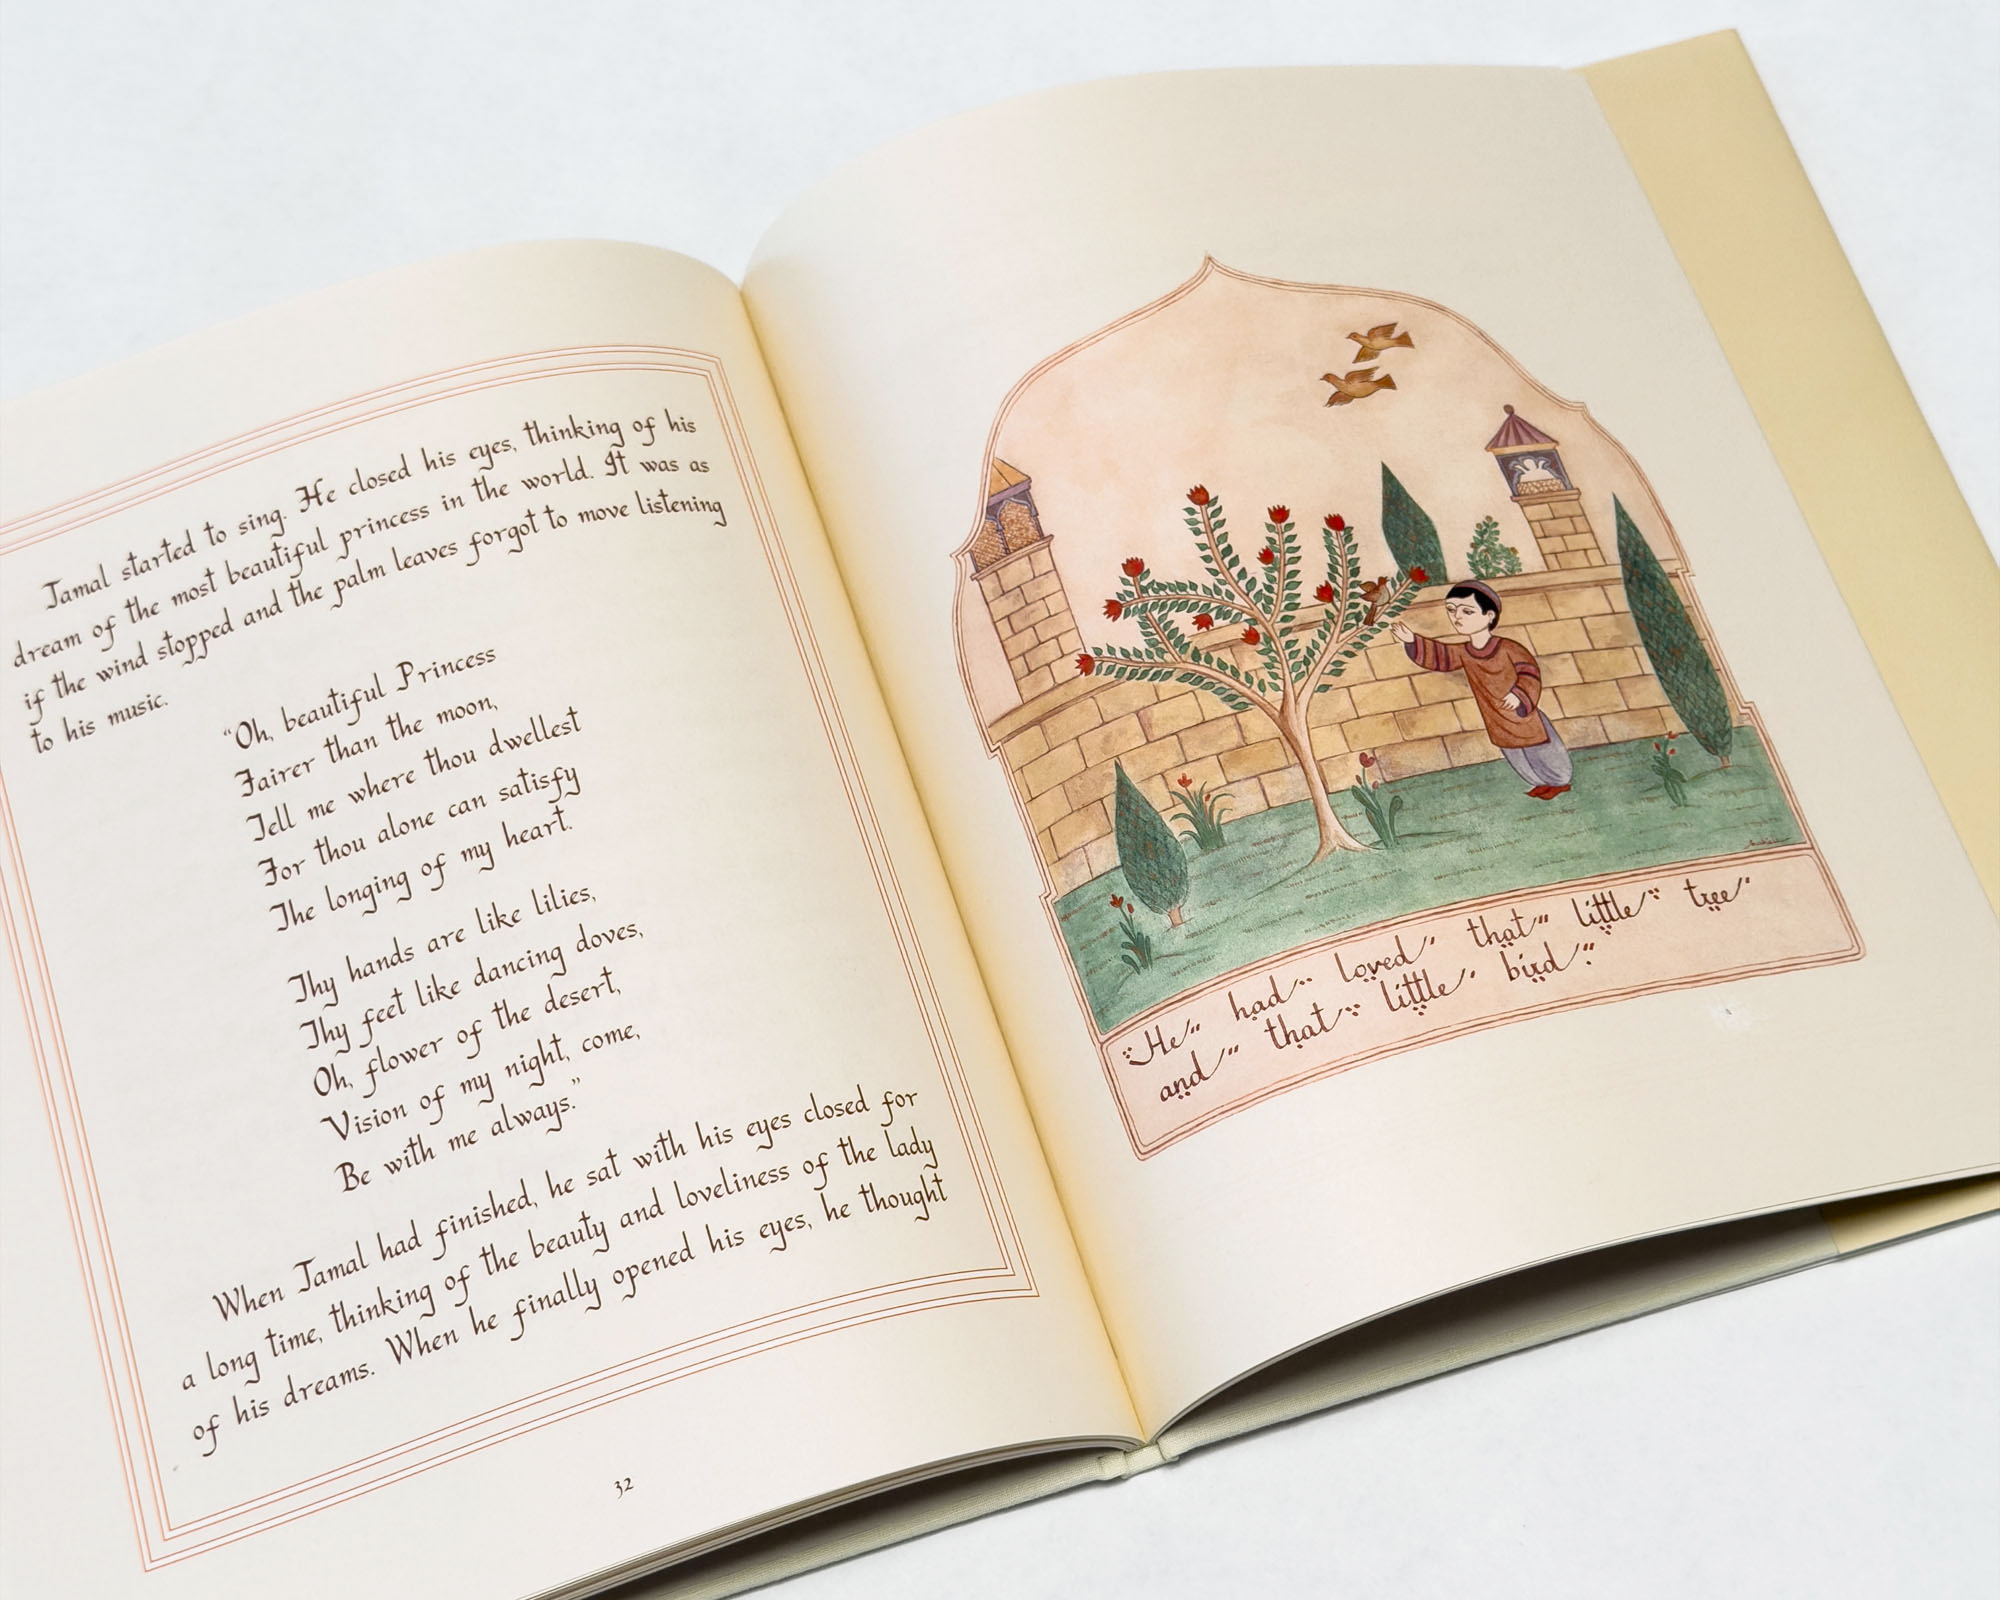 Jamal started to sing. He closed his eyes, thinking of his
dream of the most beautiful princess in the world. It was as
if the wind stopped and the palm leaves forgot to move listening
to his music.
"Oh, beautiful Princess
Fairer than the moon,
Tell me where thou dwellest
For thou alone can satisfy
The longing of my heart.
Thy hands are like lilies,
Thy feet like dancing doves,
Oh, flower of the desert,
Vision of my night, come,
Be with me always."
When Jamal had finished, he sat with his eyes closed for
a long time, thinking of the beauty and loveliness of the lady
of his dreams. When he finally opened his eyes, he thought
32
He had loved that little tree
and that little bird.